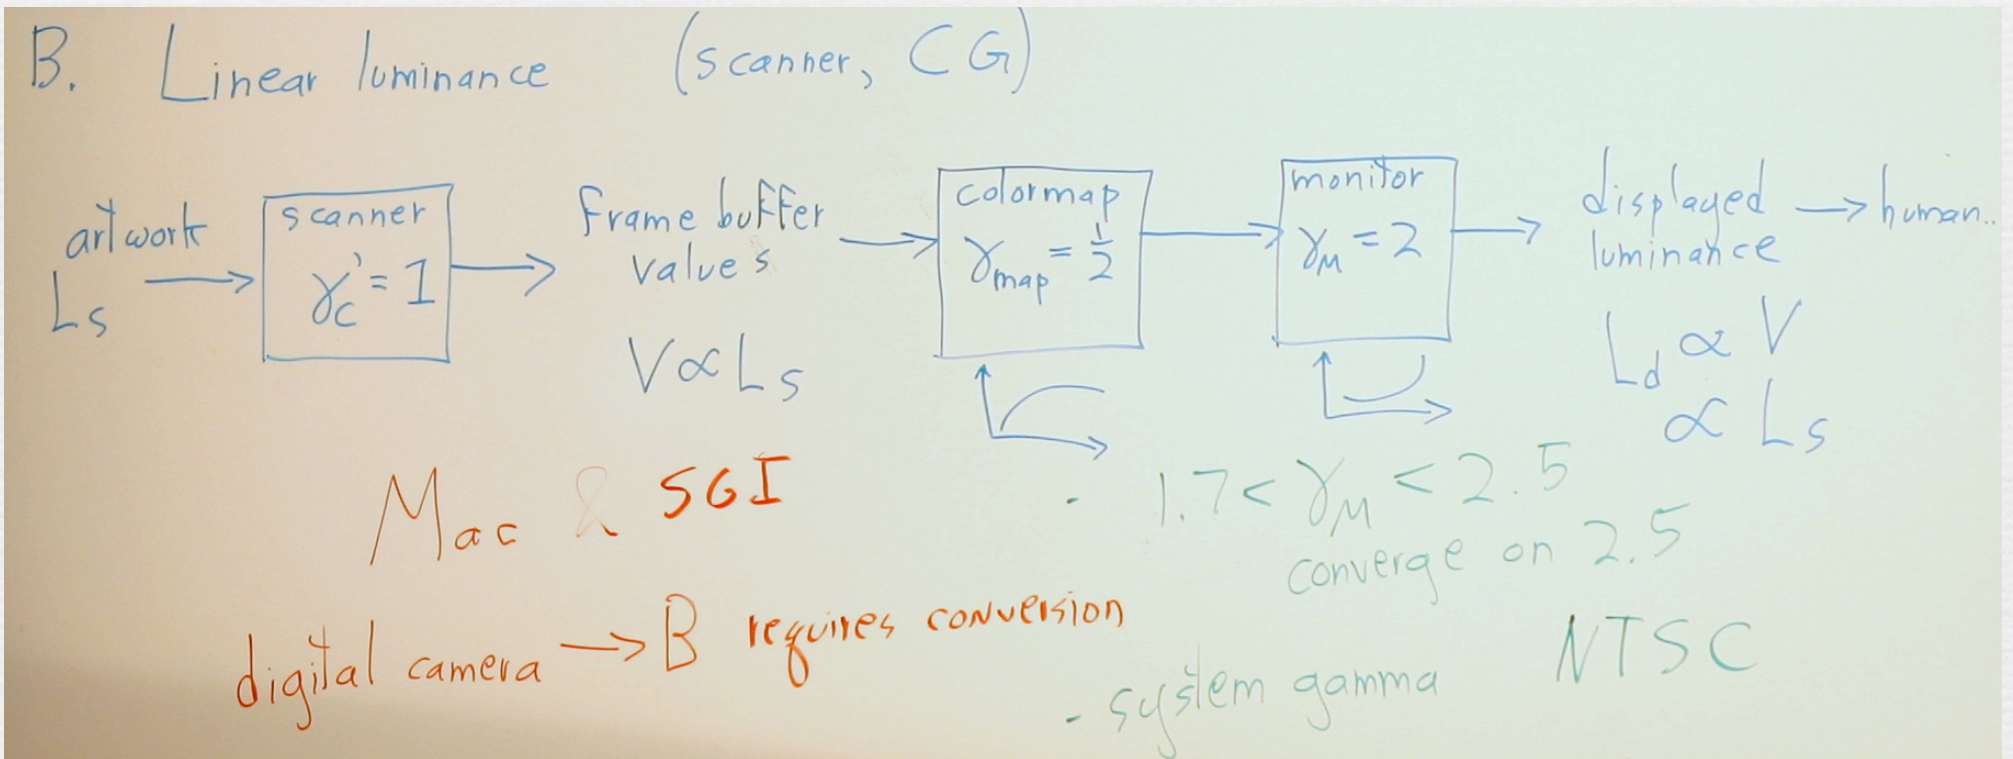 B. Linear luminance (scanner, CG)
artwork
Ls
scanner
γc' = 1
frame buffer
values
V ∝ Ls
colormap
γmap = 1/2
monitor
γM = 2
displayed → human..
luminance
Ld ∝ V
∝ Ls
Mac & SGI
- 1.7 < γM < 2.5
converge on 2.5
digital camera → B requires conversion
NTSC
- system gamma